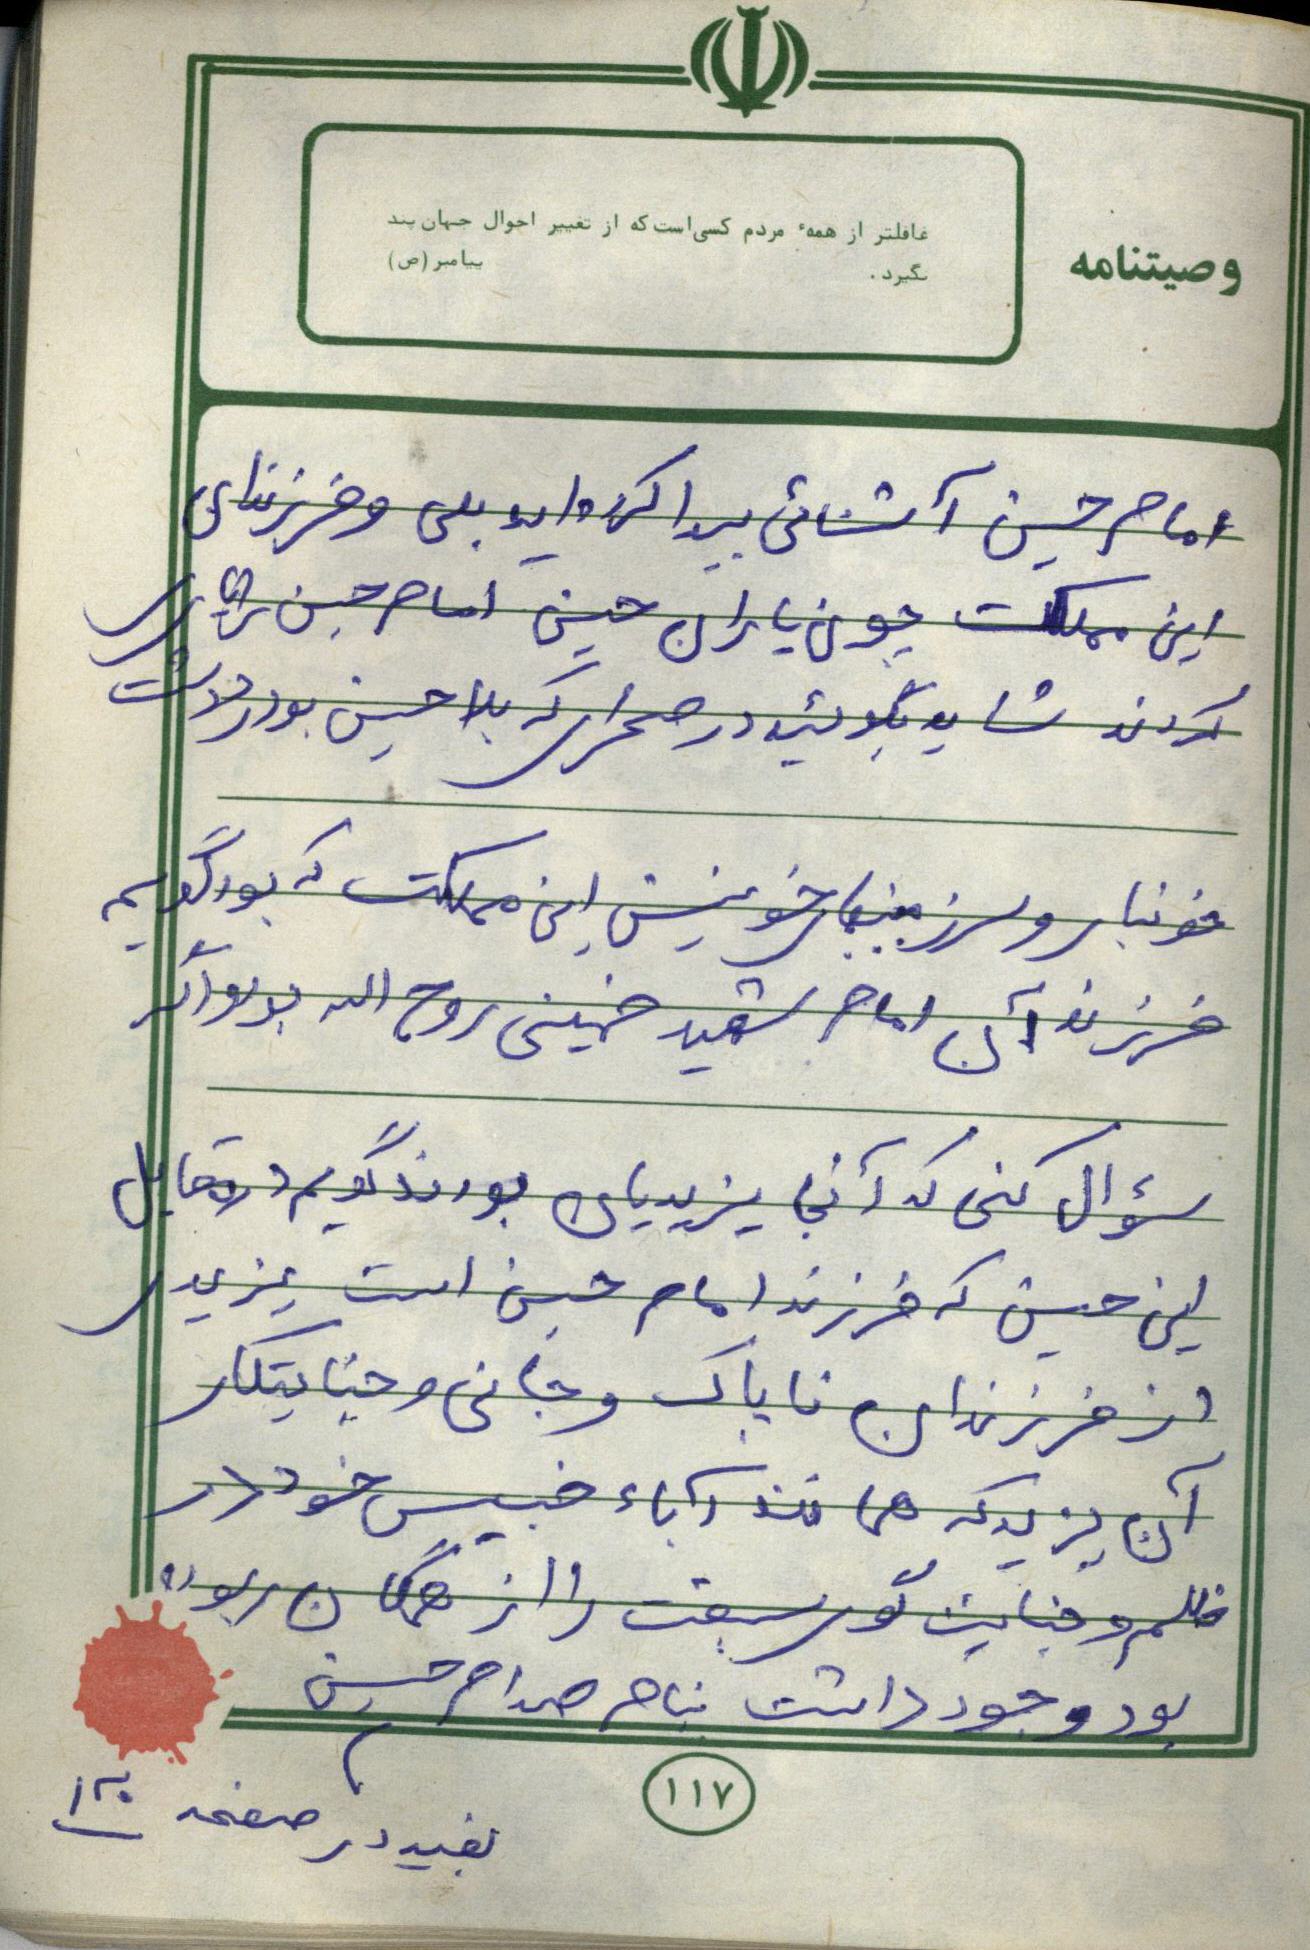 وصیتنامه
غافلتر از همهٔ مردم کسی‌است که از تغییر احوال جهان پند
نگیرد.
پیامبر (ص)
امام حسین آشنائی پیدا کرده‌اید بلی و فرزندای
این مملکت چون یاران حسین امام حسین را یاری
کردند شاید بگوئید در صحرای کربلا حسین بود در دشت
خونبار و سرزمینهای خونین این مملکت که بود گویم
فرزند آن امام شهید خمینی روح الله بود و اگر
سؤال کنی که آنجا یزیدیان بودند گویم در مقابل
این حسین که فرزند امام حسین است یزیدی
از فرزندان ناپاک و جانی و جنایتکار
آن یزید که همانند آباء خبیس خود در
ظلم و جنایت گوی سبقت را از همگان ربوده
بود وجود داشت بنام صدام حسین
۱۱۷
بقیه در صفحه ۱۲۰